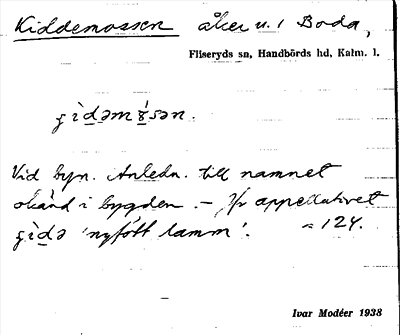 Kiddemossen åker u. 1 Boda,
Fliseryds sn, Handbörds hd, Kalm. l.
Vid byn. Anledn. till namnet
okänd i bygden. – Jfr appellativet
'nyfött lamm'. = 124.
Ivar Modéer 1938